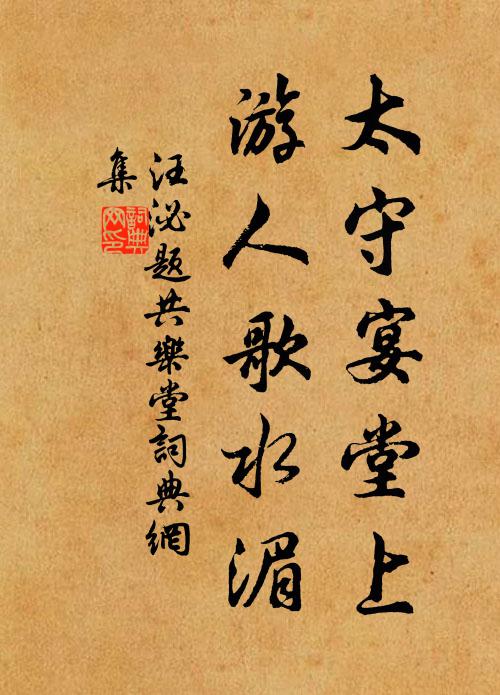 太守宴堂上
游人歌水湄
汪泌題共樂堂詞典網
集
詞典網印